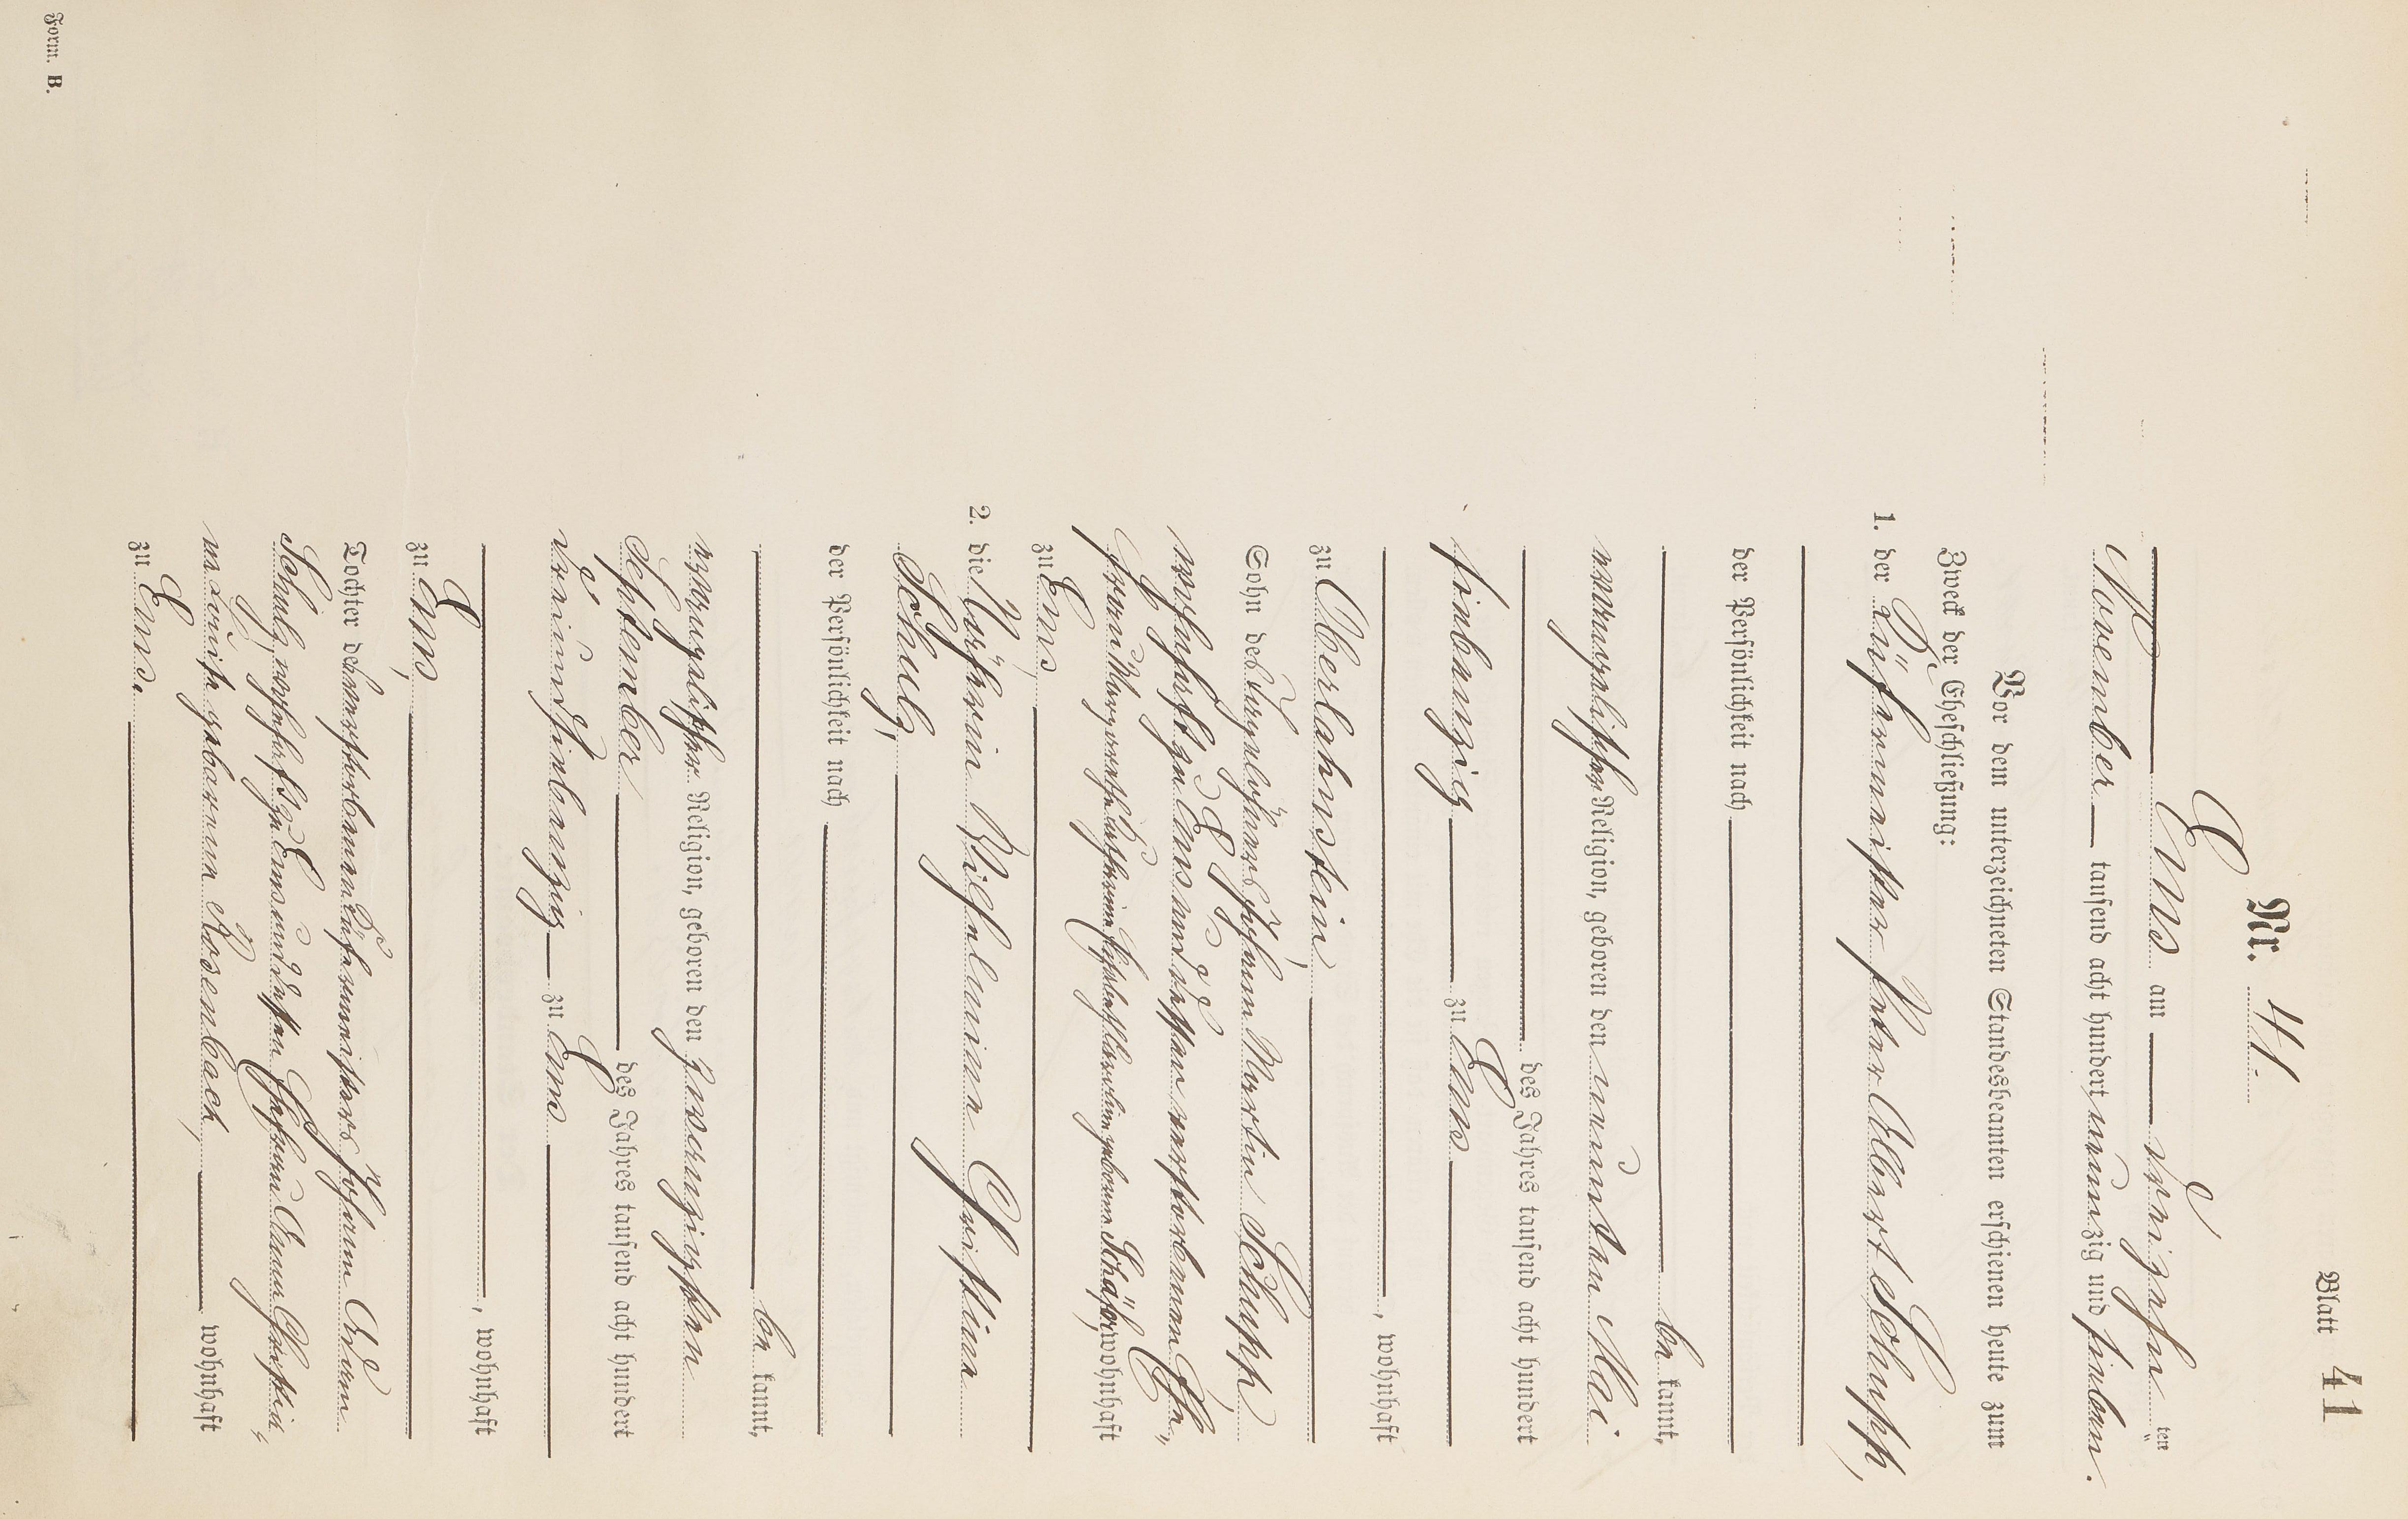 Blatt 41
Nr. 41.
Ems am dreizehnten
November tausend acht hundert neunzig und sieben.
Vor dem unterzeichneten Standesbeamten erschienen heute zum
Zweck der Eheschließung:
1. der Peter Albert Schupp,
der Persönlichkeit nach
be kannt,
evangelischer Religion, geboren den neunten Mai
des Jahres tausend acht hundert
siebenzig zu Ems
, wohnhaft
zu Oberlahnstein,
Sohn des Johann Martin Schupp
wohnhaft zu Ems und dessen verstorbenen Ehe„
frau Margarethe Katharine geborene Schäfer, wohnhaft
zu Ems,
2. die Wilhelmine Christiane
Schulz,
der Persönlichkeit nach
be kannt,
evangelischer Religion, geboren den zwanzigsten
September des Jahres tausend acht hundert
dreiundsiebenzig zu Ems
, wohnhaft
zu Ems,
Tochter des verstorbenen Johann Adam
Schulz, wohnhaft zu Ems und dessen Ehefrau
geborenen Rosenbach, wohnhaft
zu Ems.
Form. B.